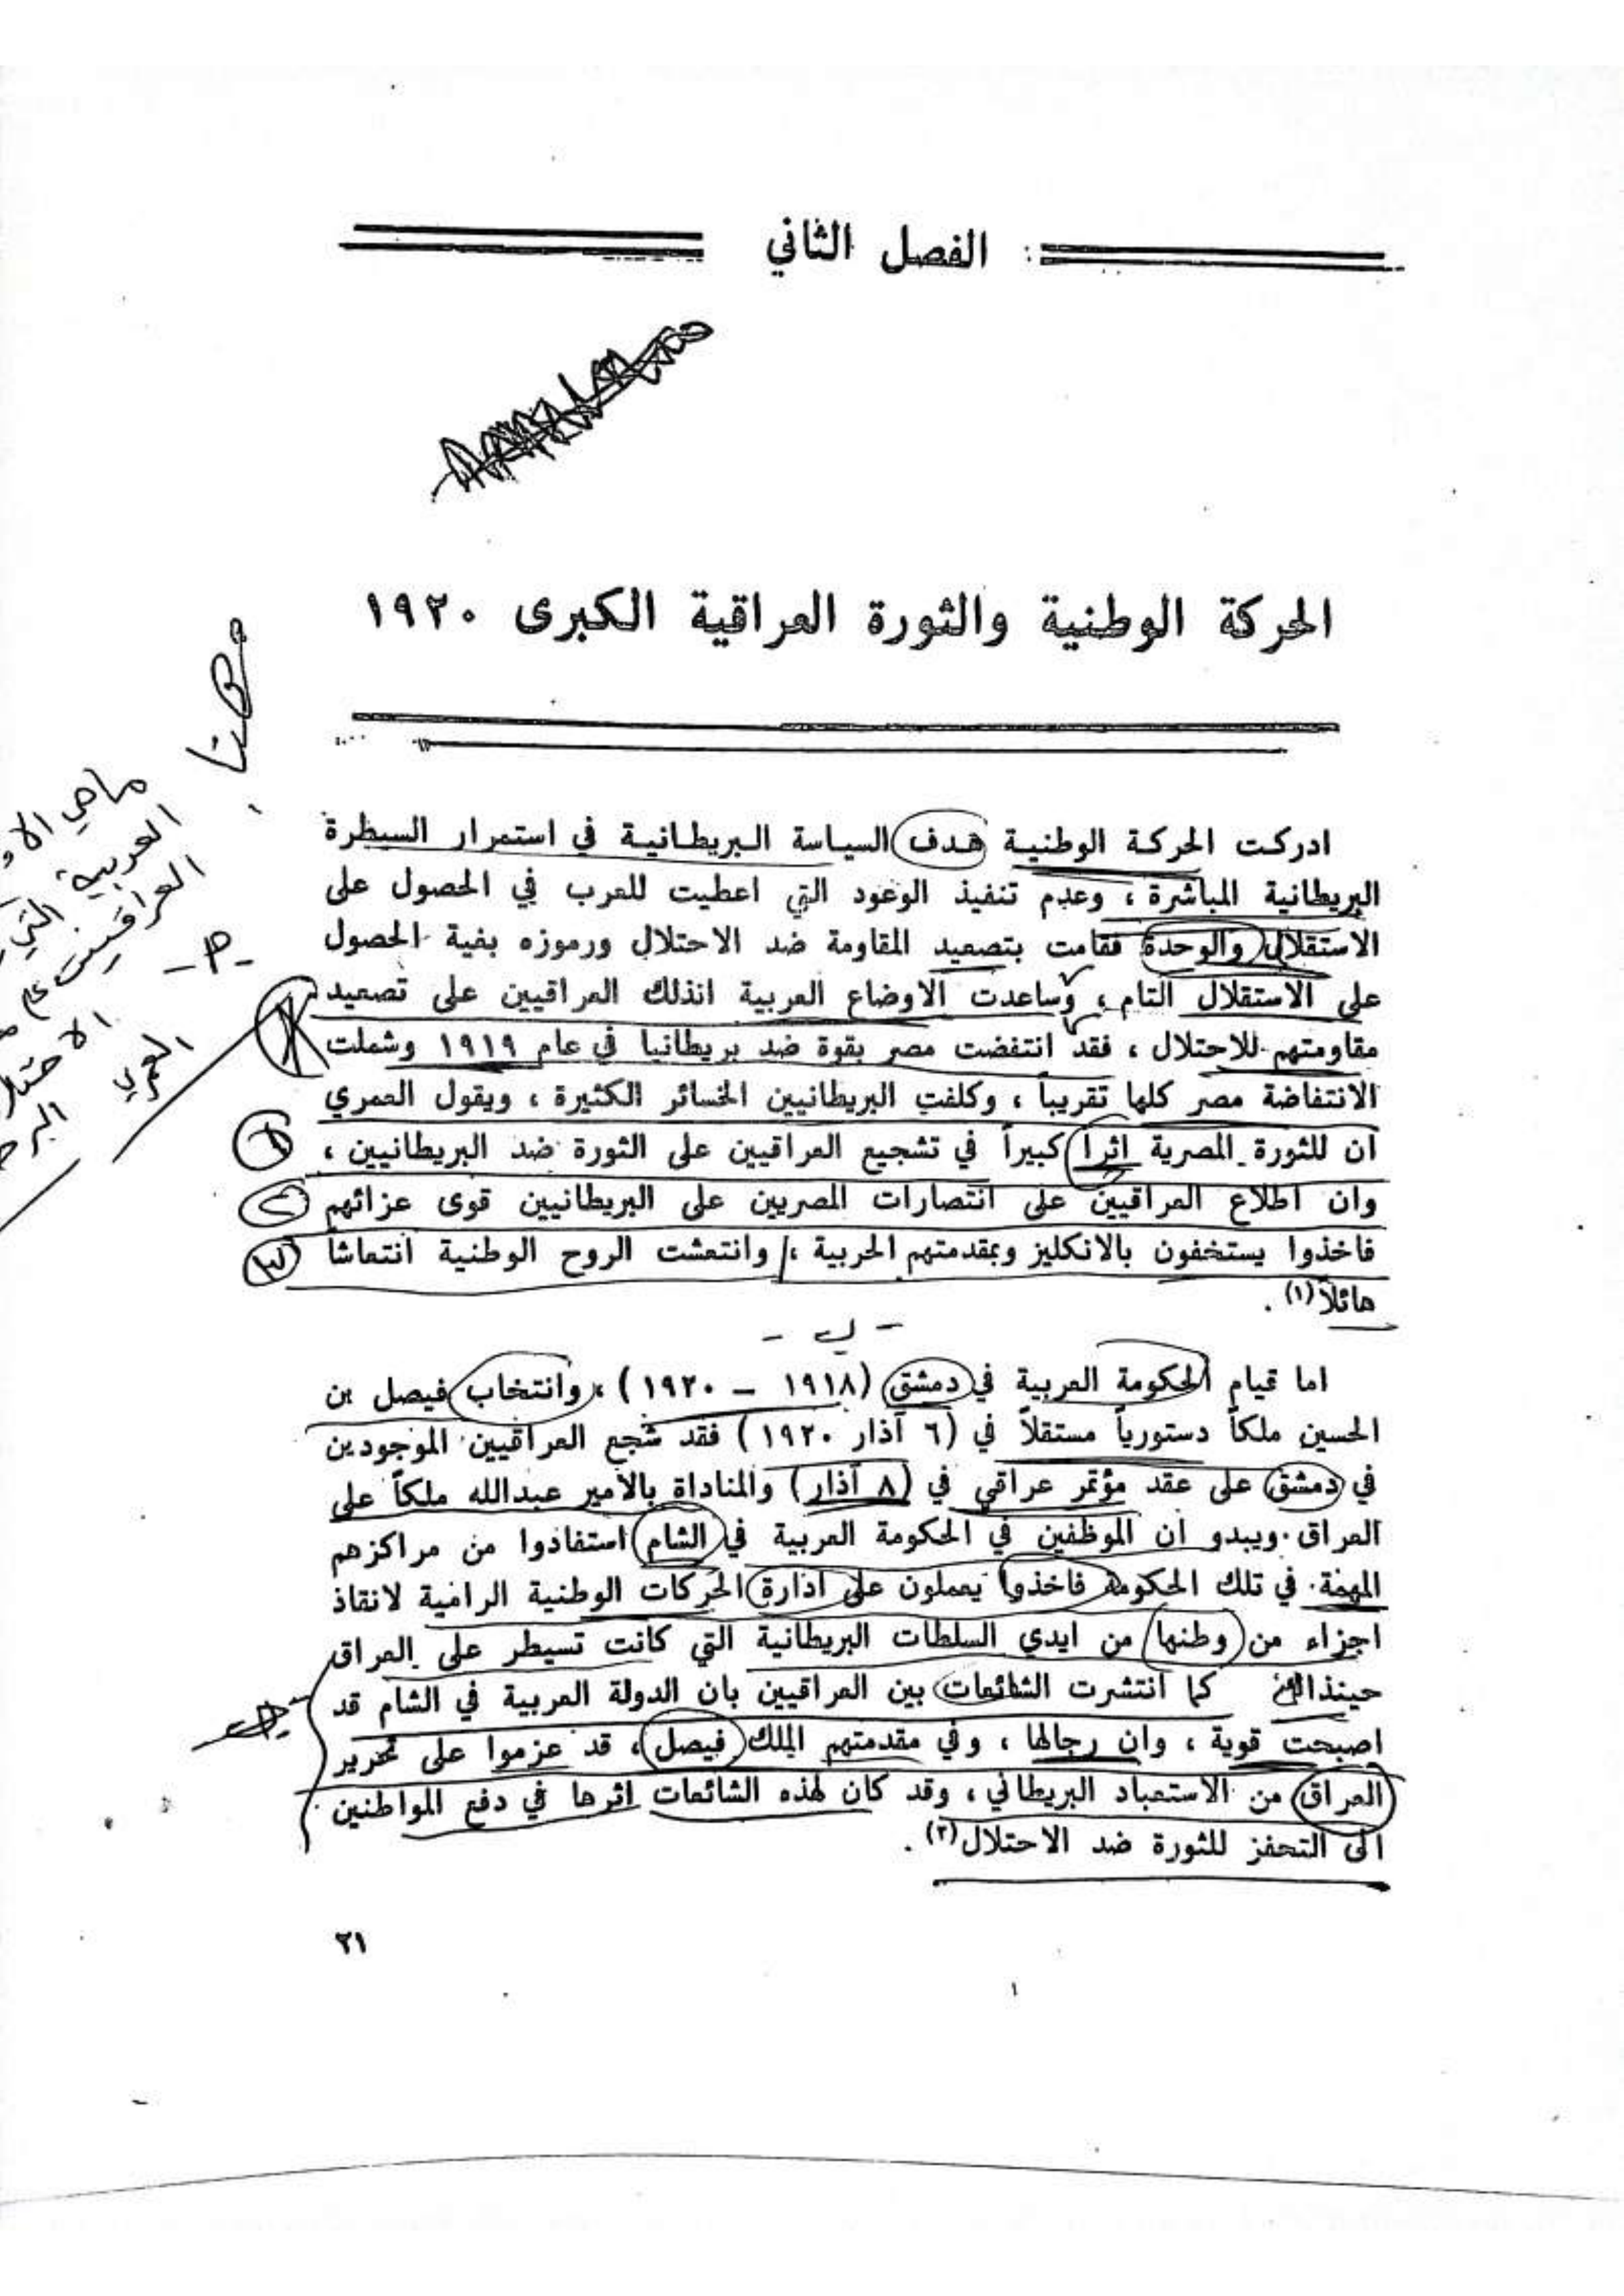 الفصل الثاني
الحركة الوطنية والثورة العراقية الكبرى ١٩٢٠
ادركت الحركة الوطنية هدف السياسة البريطانية في استمرار السيطرة
البريطانية المباشرة ، وعدم تنفيذ الوعود التي اعطيت للعرب في الحصول على
الاستقلال والوحدة فقامت بتصعيد المقاومة ضد الاحتلال ورموزه بغية الحصول
على الاستقلال التام ، وساعدت الاوضاع العربية انذلك العراقيين على تصعيد
مقاومتهم للاحتلال ، فقد انتفضت مصر بقوة ضد بريطانيا في عام ١٩١٩ وشملت
الانتفاضة مصر كلها تقريباً ، وكلفت البريطانيين الخسائر الكثيرة ، ويقول العمري
ان للثورة المصرية اثرا كبيراً في تشجيع العراقيين على الثورة ضد البريطانيين ،
وان اطلاع العراقيين على انتصارات المصريين على البريطانيين قوى عزائهم
فاخذوا يستخفون بالانكليز وبمقدمتهم الحربية ، وانتعشت الروح الوطنية انتعاشاً
هائلاً(١) .
- ب -
اما قيام الحكومة العربية في دمشق (١٩١٨ – ١٩٢٠) ، وانتخاب فيصل بن
الحسين ملكاً دستورياً مستقلاً في (٦ آذار ١٩٢٠) فقد شجع العراقيين الموجودين
في دمشق على عقد مؤتمر عراقي في (٨ آذار) والمناداة بالامير عبدالله ملكاً على
العراق . ويبدو ان الموظفين في الحكومة العربية في الشام استفادوا من مراكزهم
المهمة في تلك الحكومة فاخذوا يعملون على ادارة الحركات الوطنية الرامية لانقاذ
اجزاء من وطنها من ايدي السلطات البريطانية التي كانت تسيطر على العراق
حينذاك كما انتشرت الشائعات بين العراقيين بان الدولة العربية في الشام قد
اصبحت قوية ، وان رجالها ، وفي مقدمتهم الملك فيصل ، قد عزموا على تحرير
العراق من الاستعباد البريطاني ، وقد كان لهذه الشائعات اثرها في دفع المواطنين
الى التحفز للثورة ضد الاحتلال(٢) .
٢١
١
ماهي الا
العربية التي